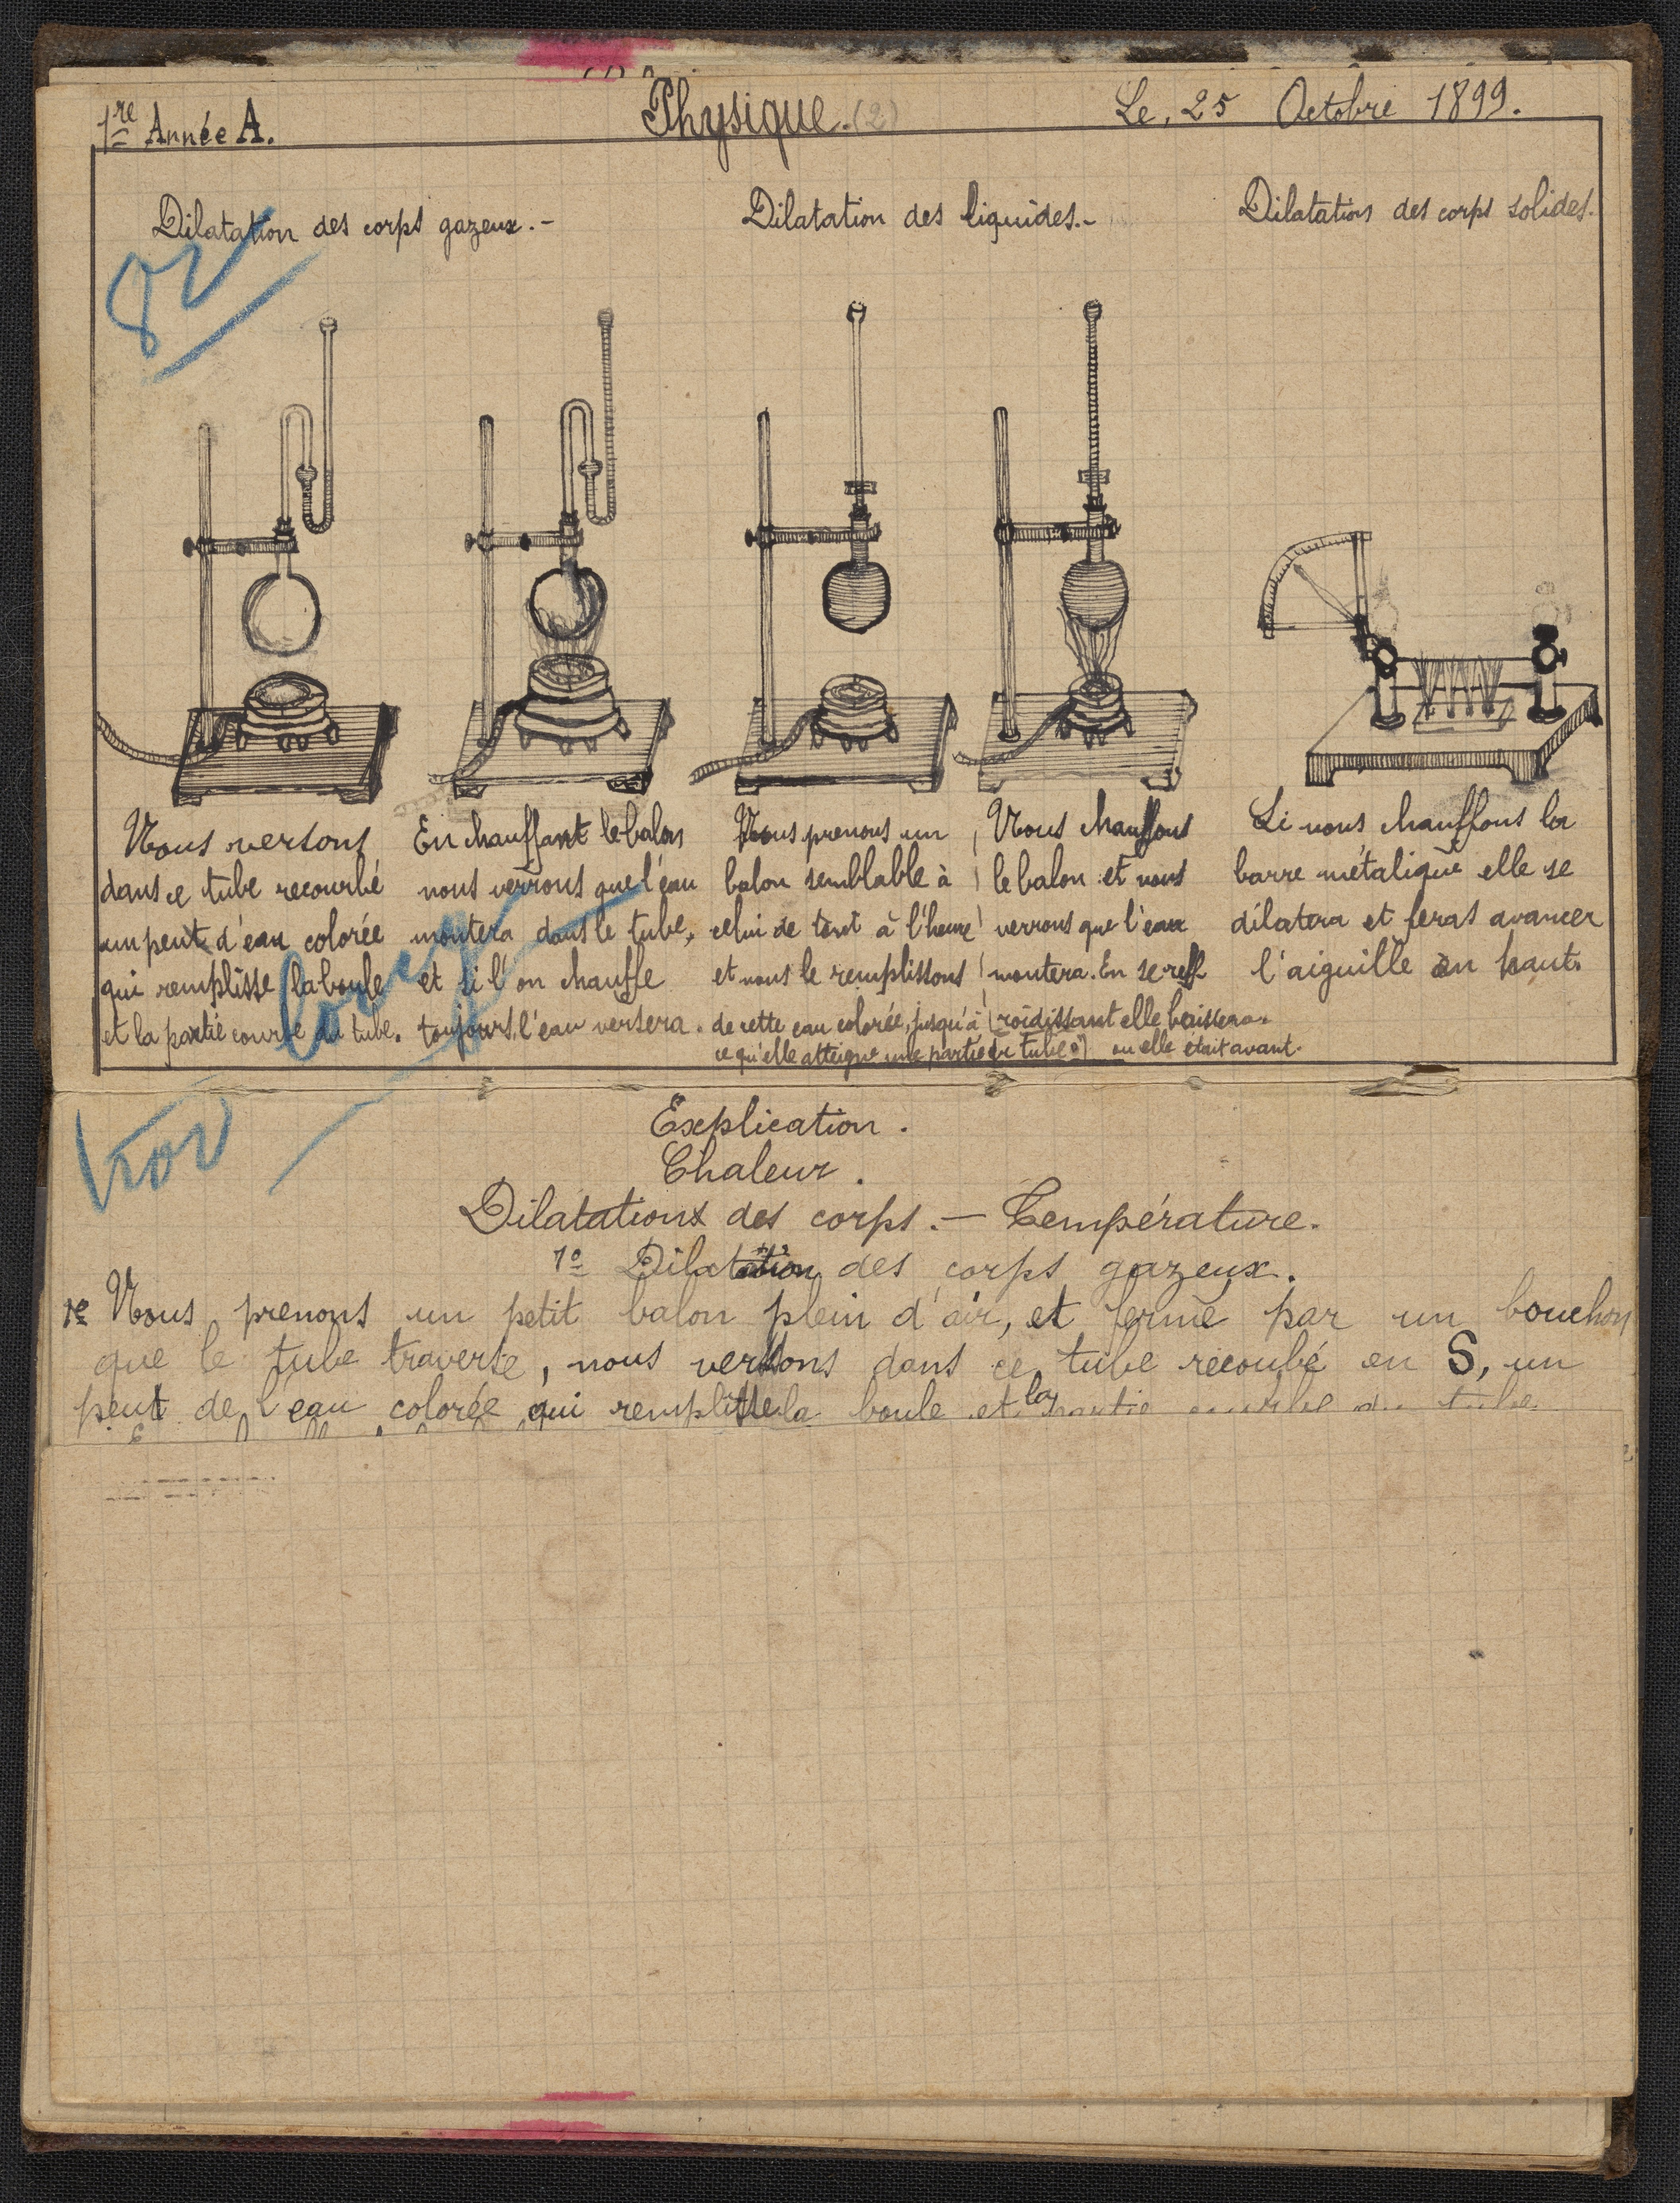 1re Année A.
Physique. (2)
Le, 25 Octobre 1899.
Dilatation des corps gazeux. -
Dilatation des liquides. -
Dilatation des corps solides.
82
Nous versons
dans ce tube recourbé
un peut d'eau colorée
qui remplisse la boule
et la partie courbe du tube.
En chauffant le balon
nous verrons que l'eau
montera dans le tube,
et si l'on chauffe
toujours, l'eau versera.
Nous prenons un
balon semblable à
celui de tout à l'heure
et nous le remplissons
de cette eau colorée, jusqu'à
ce qu'elle atteigne une partie du tube
Nous chauffons
le balon et nous
verrons que l'eau
montera. En se ref
roidissant elle baissera
ou elle était avant.
Si nous chauffons la
barre métalique elle se
dilatera et feras avancer
l'aiguille en haut.
Explication.
Chaleur.
Dilatations des corps. - Température.
1º Dilatation des corps gazeux.
1e Nous prenons un petit balon plein d'air, et fermé par un bouchon
que le tube traverse, nous versons dans ce tube recoubé en S, un
peut de l'eau colorée qui remplisse la boule et la partie courbe du tube